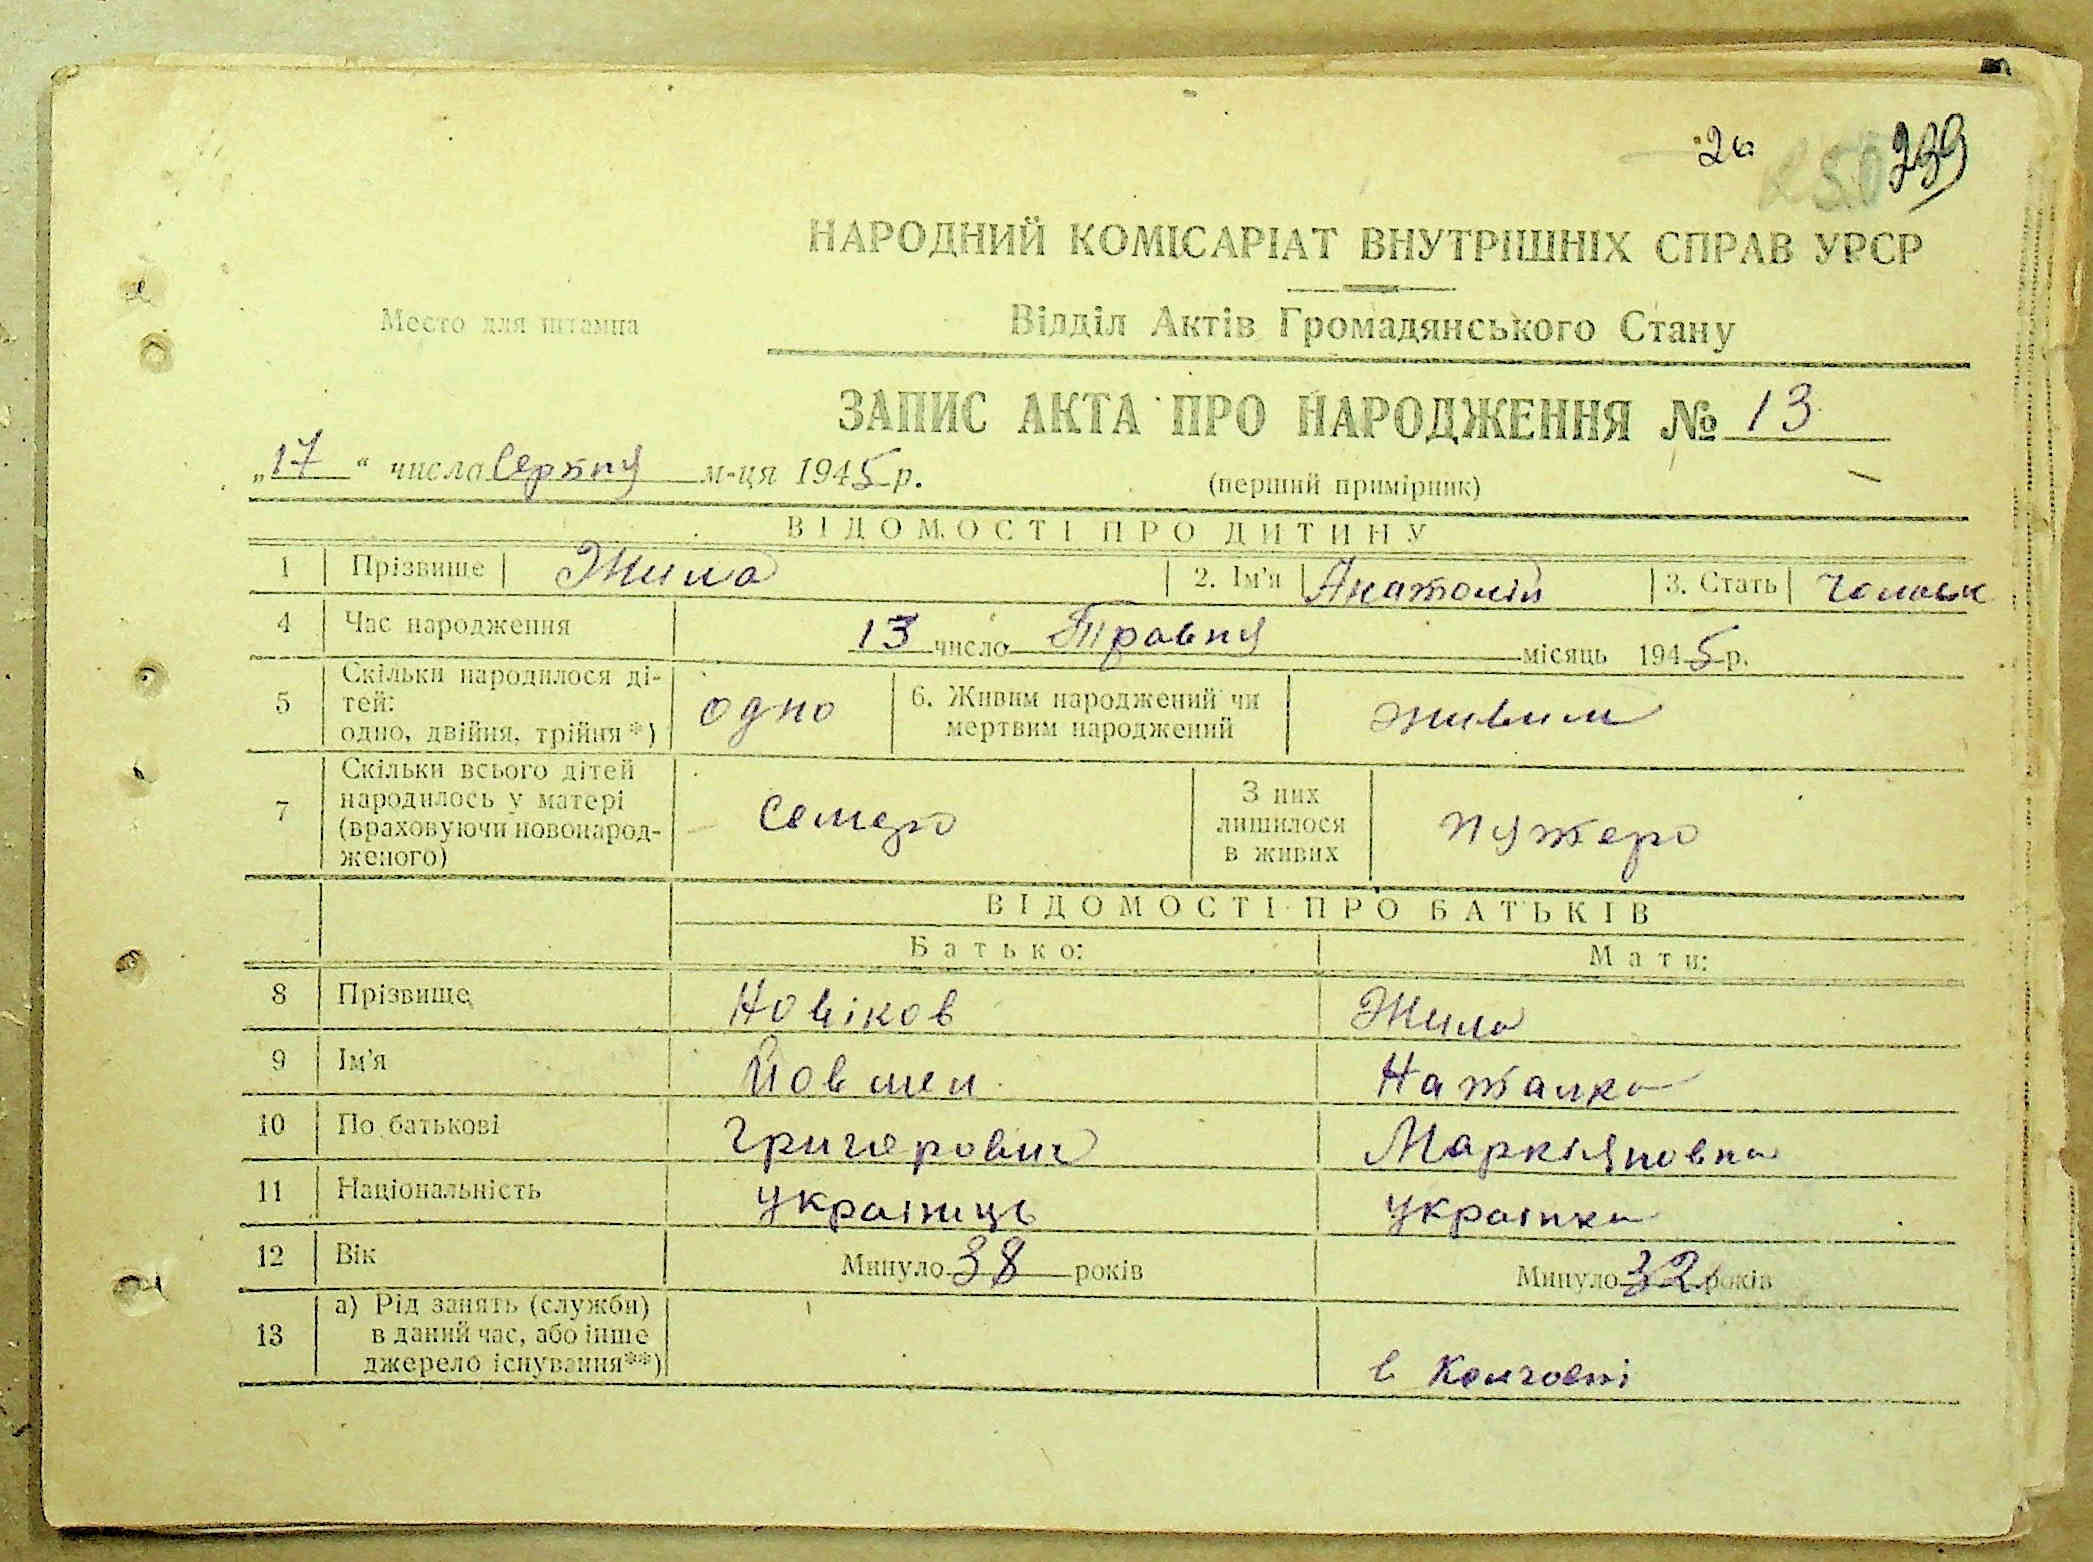 26 250 239
НАРОДНИЙ КОМІСАРІАТ ВНУТРІШНІХ СПРАВ УРСР
Место для штампа
Відділ Актів Громадянського Стану
ЗАПИС АКТА ПРО НАРОДЖЕННЯ № 13
„17“ числа Серпня м-ця 1945 р.
(перший примірник)
ВІДОМОСТІ ПРО ДИТИНУ
1 Прізвище Жила 2. Ім'я Анатолій 3. Стать Чоловік
4 Час народження 13 число Травня місяць 1945 р.
5 Скільки народилося ді-
тей:
одно, двійня, трійня*) одно 6. Живим народжений чи
мертвим народжений живим
7 Скільки всього дітей
народилось у матері
(враховуючи новонарод-
женого) Семеро З них
лишилося
в живих пятеро
ВІДОМОСТІ ПРО БАТЬКІВ
Батько: Мати:
8 Прізвище Новіков Жила
9 Ім'я Йовмен Наталка
10 По батькові Григорович Маркіяновна
11 Національність українць українка
12 Вік Минуло 38 років Минуло 32 років
13 а) Рід занять (служби)
в даний час, або інше
джерело існування**) в Колгоспі